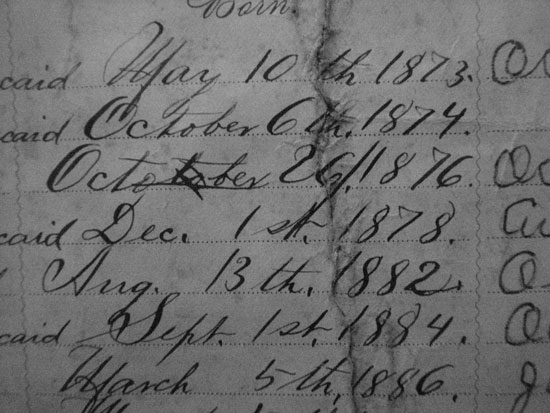 Born.
caid May 10th 1873.
caid October 6th. 1874.
October 26, 1876.
caid Dec. 1st. 1878.
Aug. 13th. 1882.
caid Sept. 1st. 1884.
March 5th, 1886.